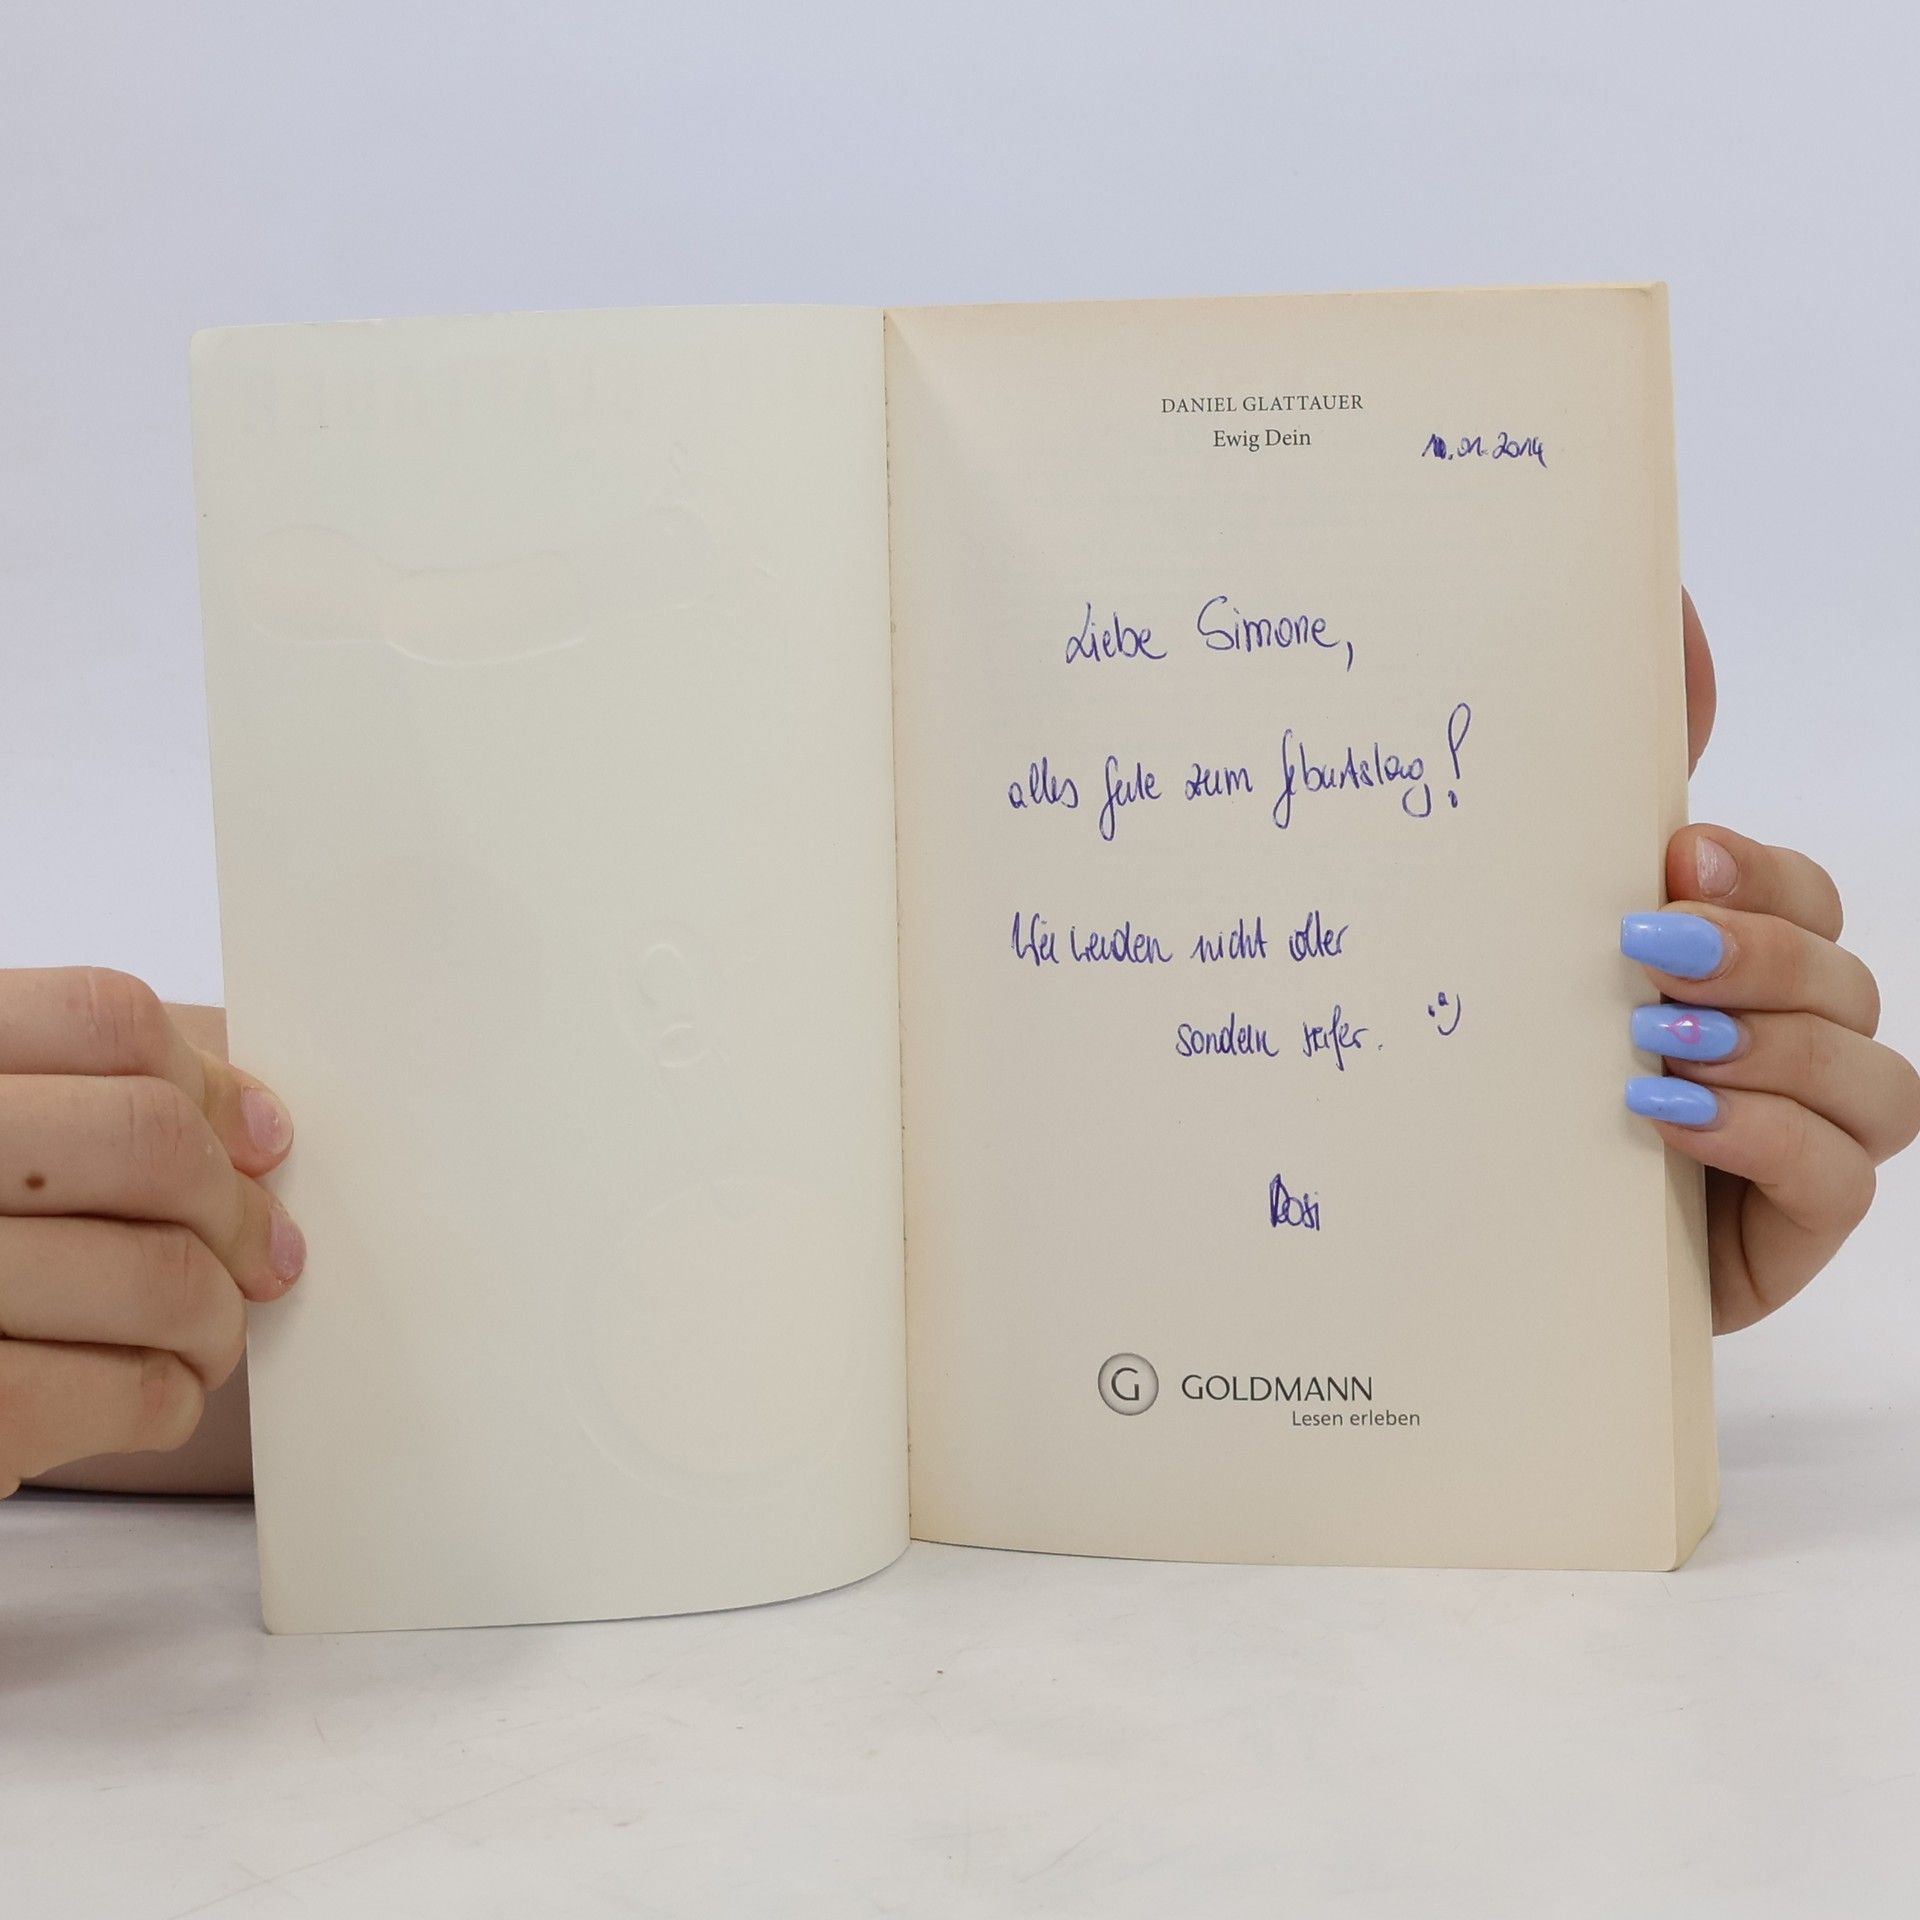 DANIEL GLATTAUER
Ewig Dein
.01.2014
Liebe Simone,
alles Gute zum Geburtstag!
Wir werden nicht älter
sondern reifer. :)
Rosi
G GOLDMANN
Lesen erleben